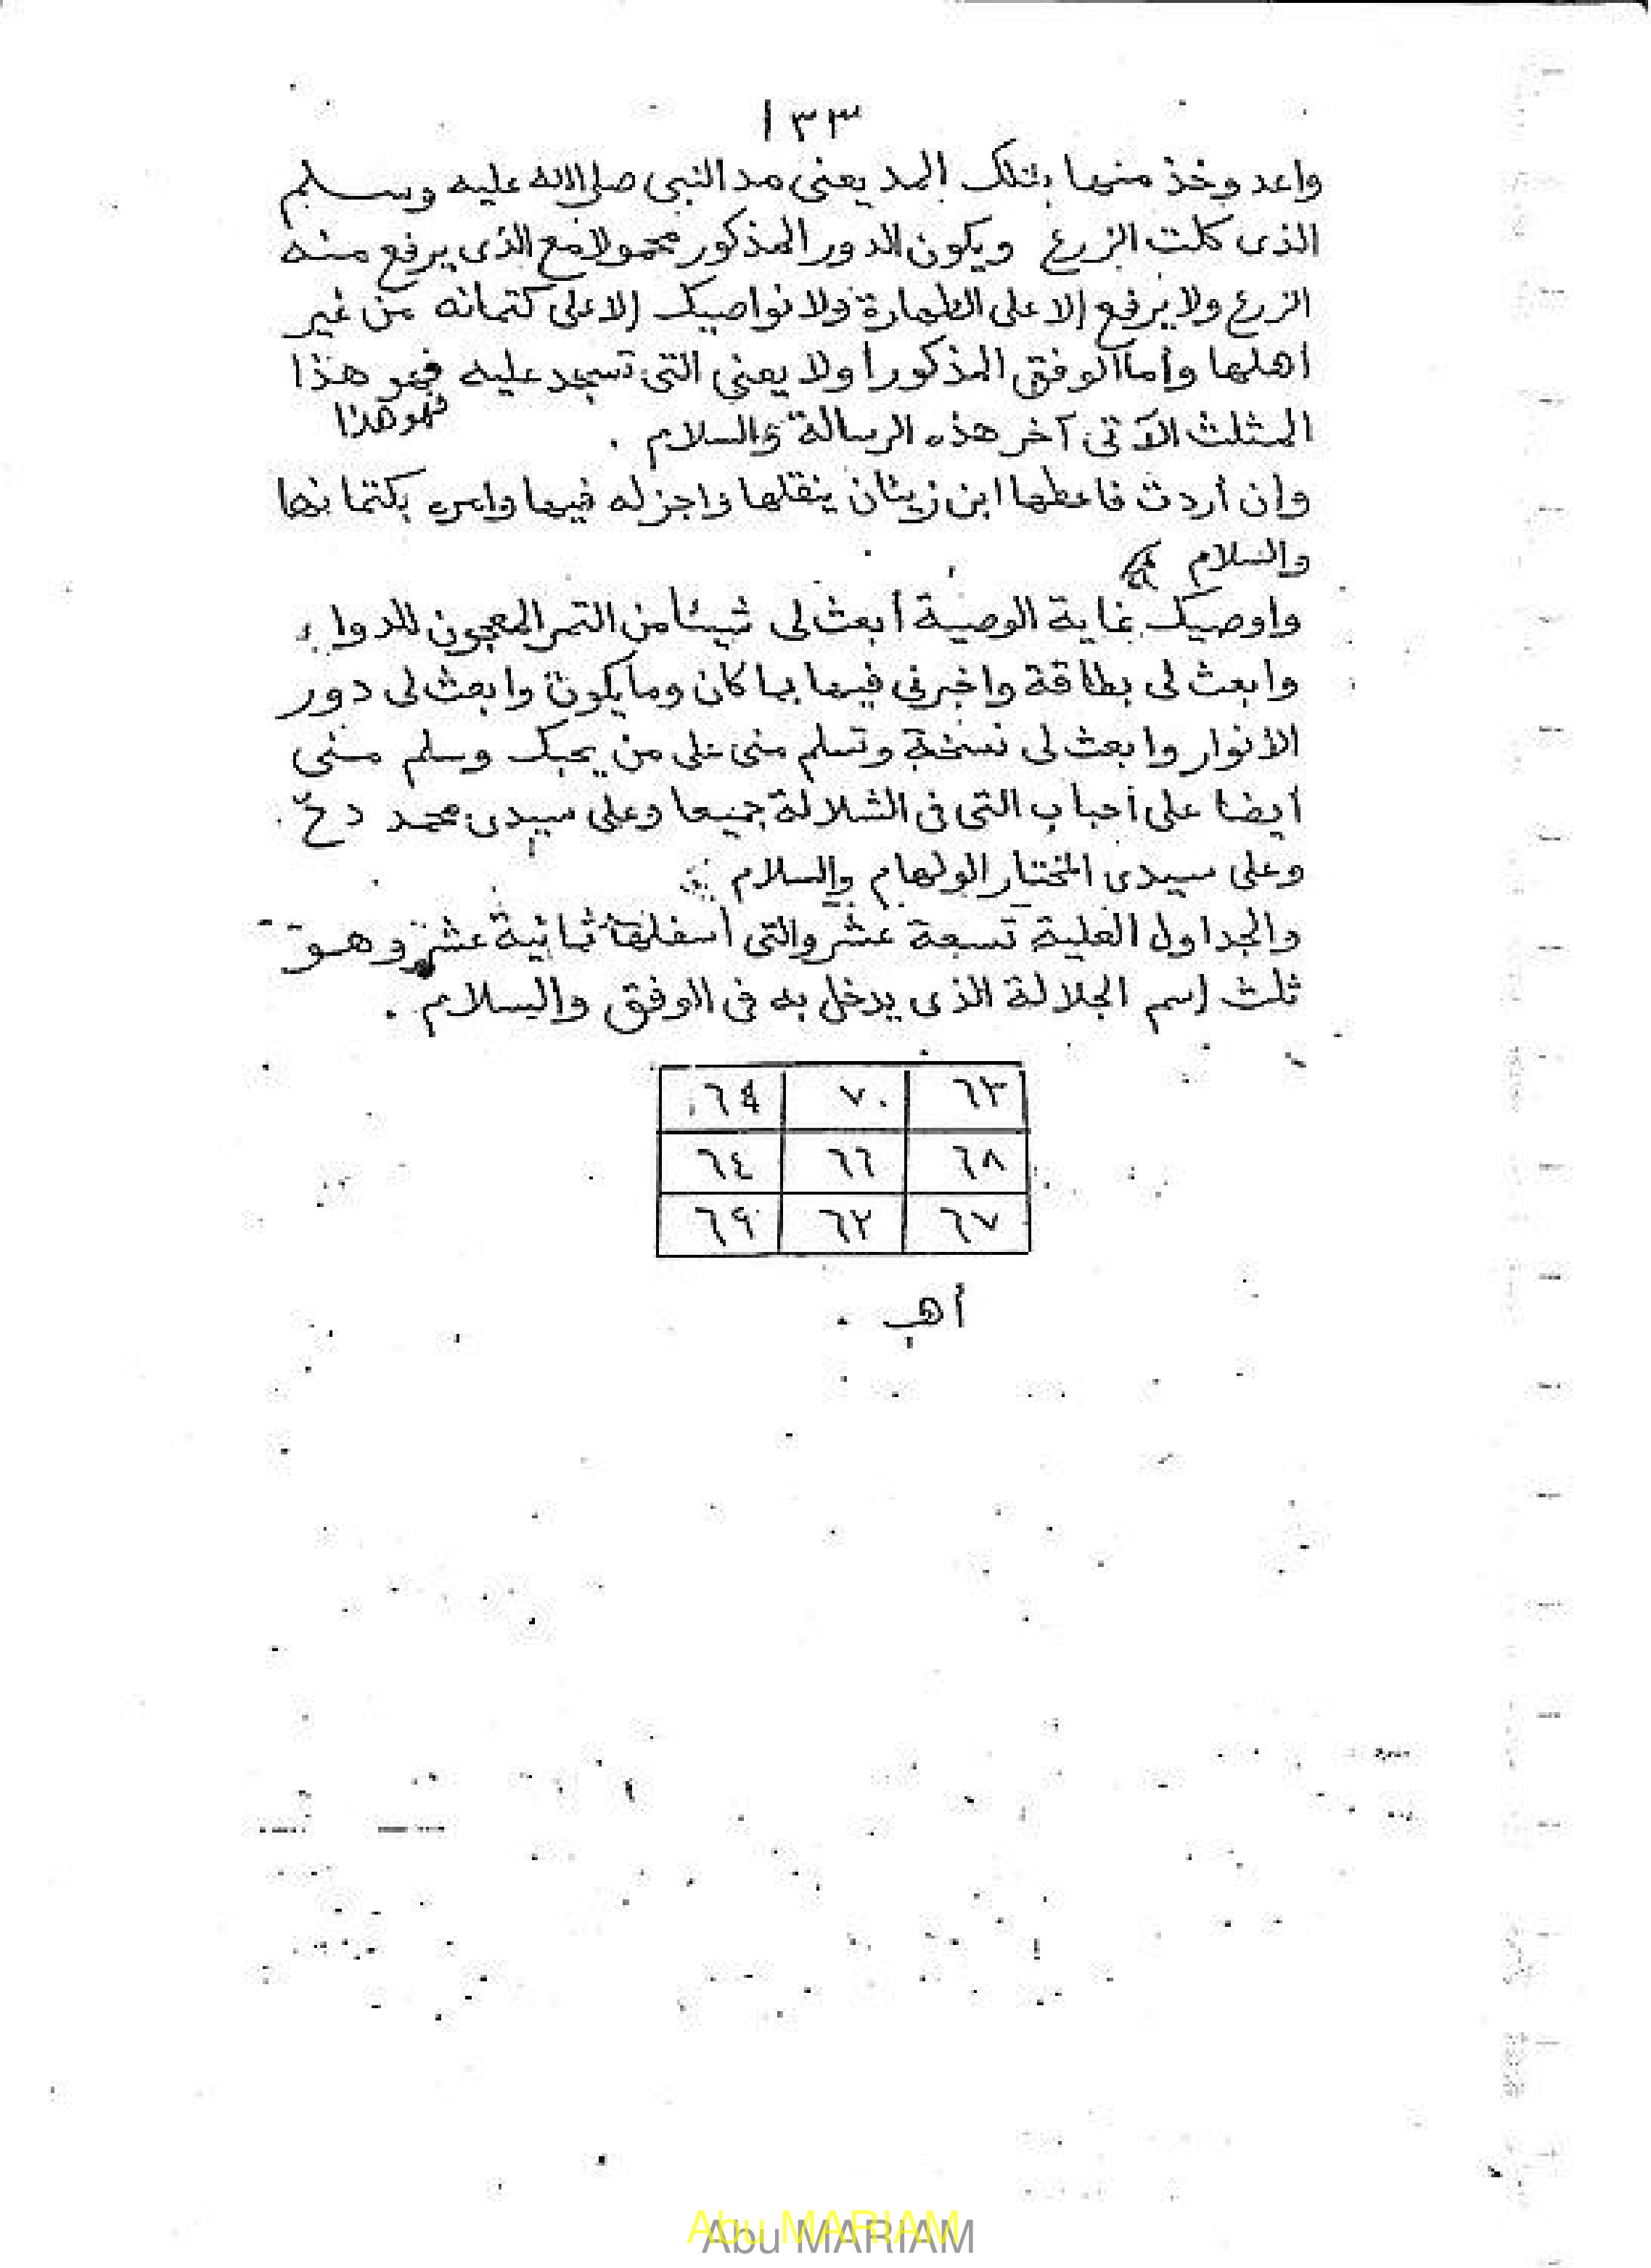 ١٣٣
واعد وخذ منها بتلك المد يعنى مد النبى صلى الله عليه وسلم
الذى كلت الزرع ويكون الدور المذكور محمولا مع الذى يرفع منه
الزرع ولا يرفع إلا على الطهارة ولا نواصيك إلا على كتمانه من غير
أهلها وأما الوفق المذكور أولا يعنى التى تسجد عليه فهو هذا
فهو هذا
المثلث الآتى آخر هذه الرسالة والسلام .
وإن أردت فاعطها ابن زيان ينقلها واجزله فيها وامره بكتمانها
والسلام
واوصيك غاية الوصية أبعث لى شيئا من التمر المعجون للدواء
وابعث لى بطاقة واخبرنى فيها بما كان وما يكون وابعث لى دور
الأنوار وابعث لى نسخة وتسلم منى على من يحبك وسلم منى
أيضا على أحباب التى فى الشلالة جميعا وعلى سيدى محمد دحّ .
وعلى سيدى المختار الولهام والسلام
والجداول العلية تسعة عشر والتى أسفلها ثمانية عشر وهو
ثلث إسم الجلالة الذى يدخل به فى الوفق والسلام .
٦٣ ٧٠ ٦٤
٦٨ ٦٦ ٦٤
٦٧ ٦٢ ٦٩
أهـ .
Abu MARIAM
Abu MARIAM